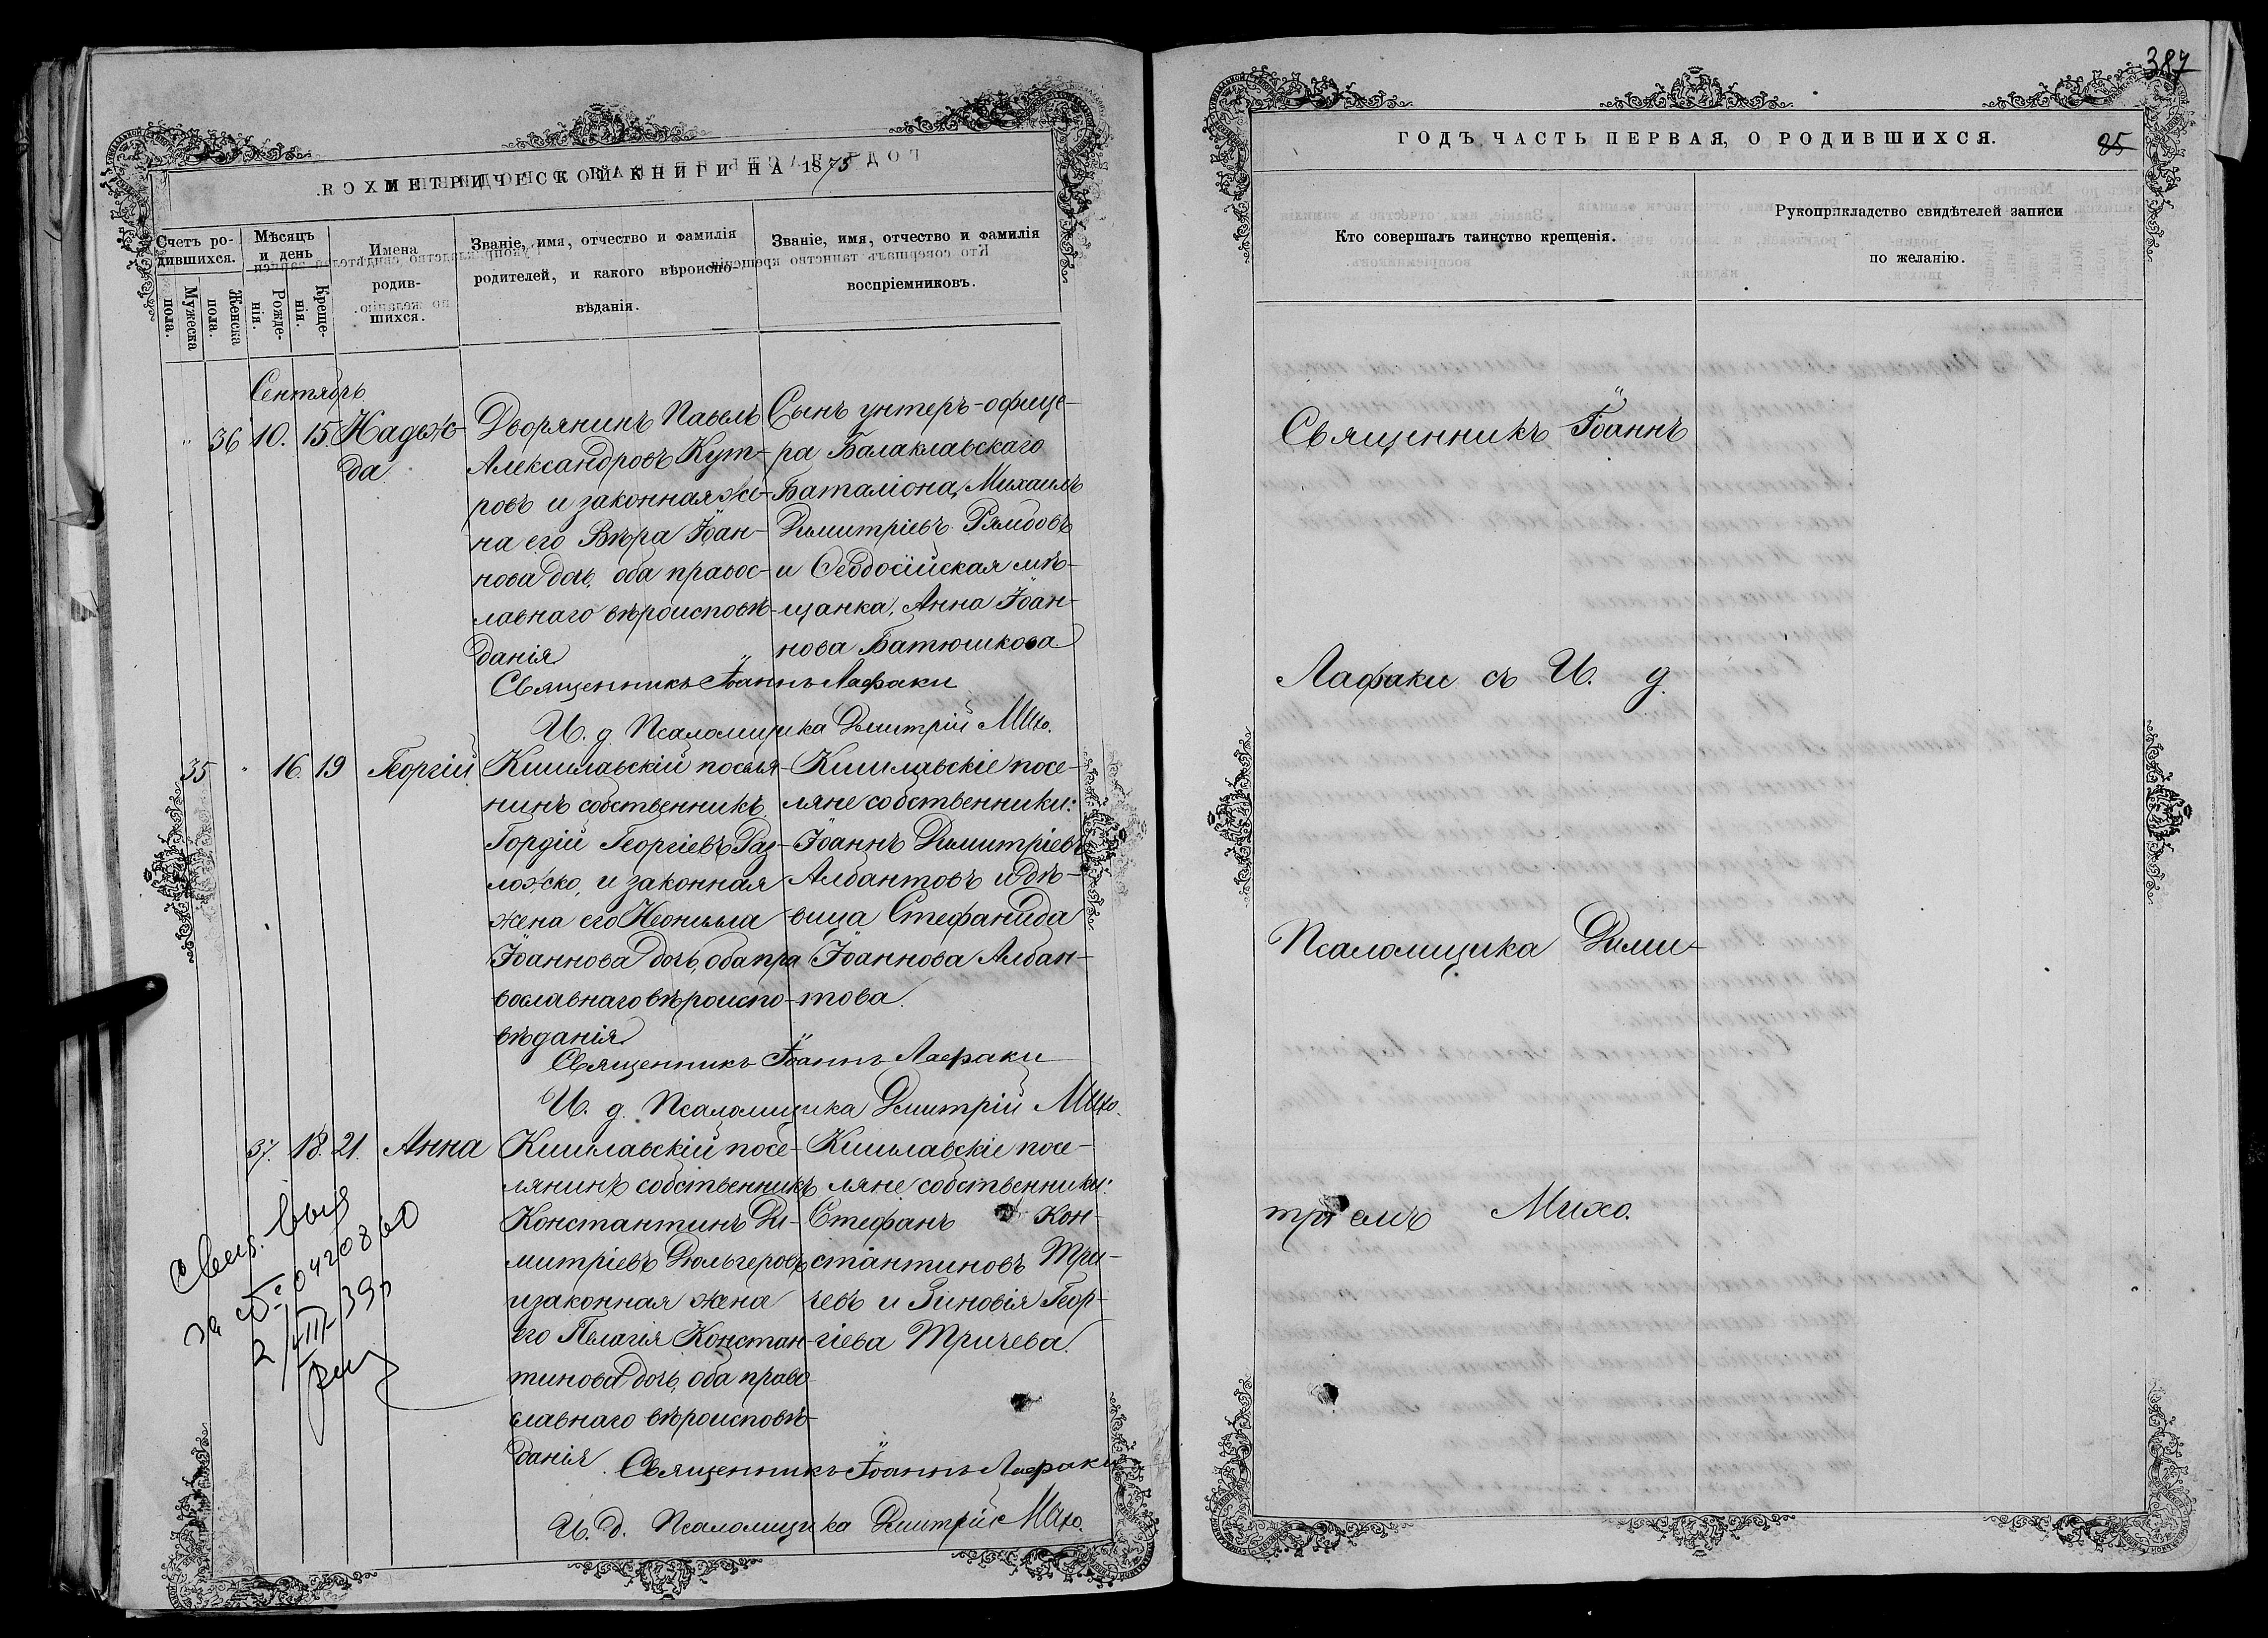 МЕТРИЧЕСКОЙ КНИГИ НА 1875
Счетъ ро-
дившихся.
Мужеска
пола.
Женска
пола.
Мѣсяцъ
и день
Рожде-
нія.
Креще-
нія.
Имена
родив-
шихся.
Званіе, имя, отчество и фамилія
родителей, и какого вѣроиспо-
вѣданія.
Званіе, имя, отчество и фамилія
воспріемниковъ.
Сентябрь
" 36 10. 15. Надеж-
да
Дворянинъ Павелъ
Александровъ Кут-
ровъ и законная же-
на его Вѣра Іоан-
нова дочь, оба правос-
лавнаго вѣроисповѣ-
данія
Сынъ унтеръ-офице-
ра Балаклавскаго
Баталіона, Михаилъ
Димитріевъ Рямбовъ
и Ѳеодосійская мѣ-
щанка, Анна Іоан-
нова Батюшкова
Священникъ Іоаннъ Лафаки
И. д. Псаломщика Димитрій Михо.
35 " 16. 19 Георгій
Кишлавскій поселя-
нинъ собственникъ
Гордій Георгіевъ Раз-
ложко, и законная
жена его Неонилла
Іоаннова дочь, оба пра
вославнаго вѣроиспо-
вѣданія
Кишлавскіе посе-
ляне собственники:
Іоаннъ Димитріевъ
Албантовъ и дѣ-
вица Стефанида
Іоаннова Албан-
това.
Священникъ Іоаннъ Лафаки
И. д. Псаломщика Димитрій Михо.
37. 18. 21. Анна
Кишлавскій посе-
лянинъ собственникъ
Константинъ Ди-
митріевъ Дюльгеровъ
и законная жена
его Пелагія Констан-
тинова дочь, оба право
славнаго вѣроисповѣ-
данія
Кишлавскіе посе-
ляне собственники:
Стефанъ Кон-
стантиновъ Три-
чевъ и Зиновія Геор-
гіева Тричева.
Священникъ Іоаннъ Лафаки
И. д. Псаломщика Димитрій Михо.
за № 0420860
2/VIII-39
387
ГОДЪ ЧАСТЬ ПЕРВАЯ, О РОДИВШИХСЯ.
85
Кто совершалъ таинство крещенія.
Рукоприкладство свидѣтелей записи
по желанію.
Священникъ Іоаннъ
Лафаки съ И. д.
Псаломщика Дими-
тріемъ Михо.